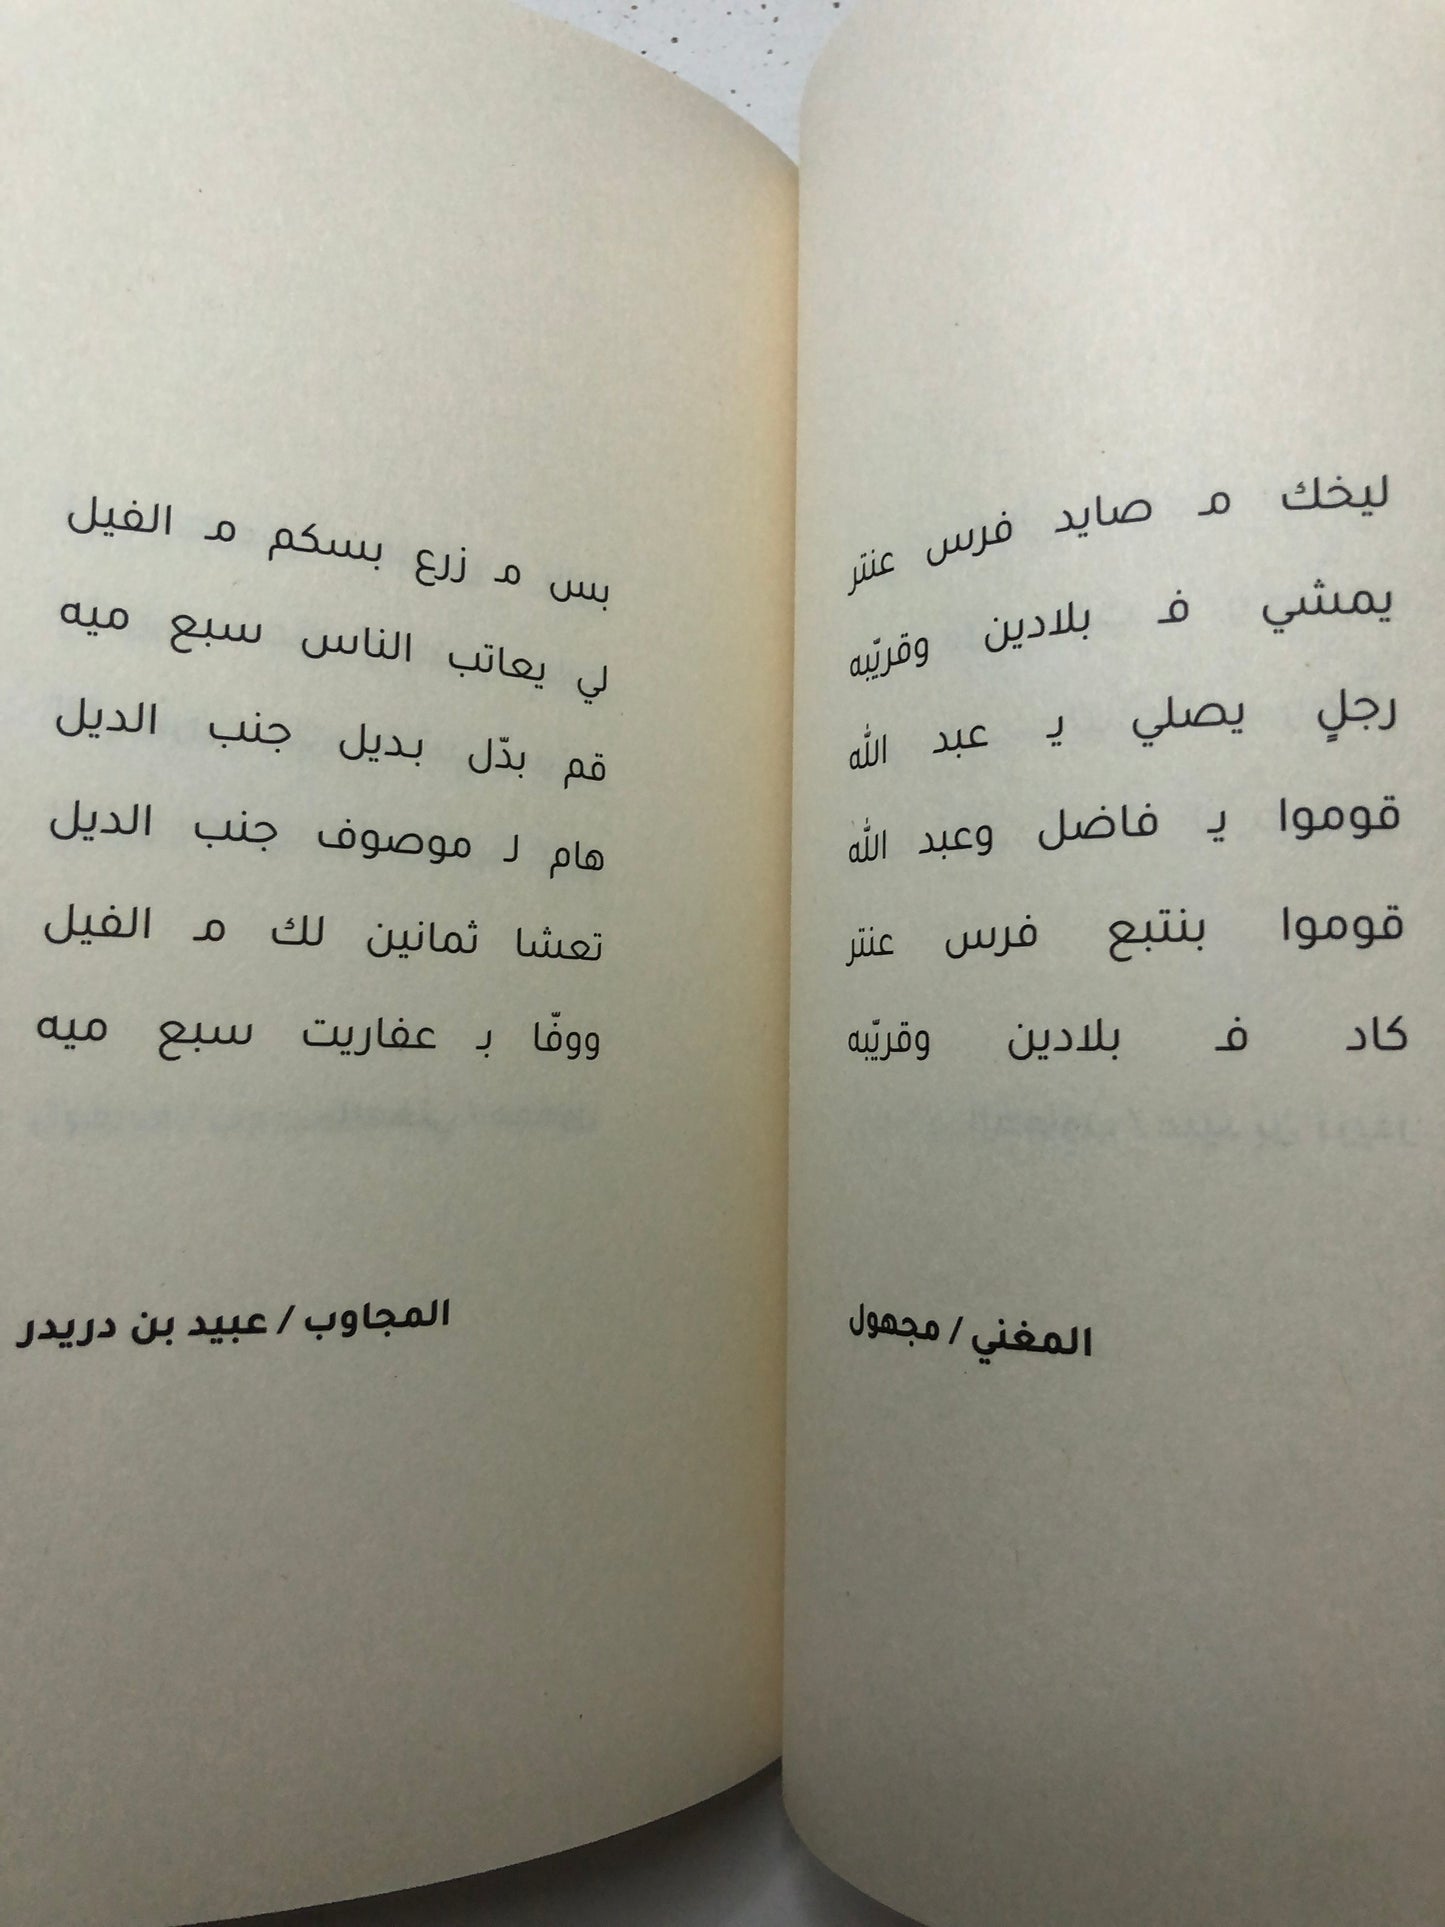 ليخك مـ صايد فرس عنتر
يمشي فـ بلادين وقريّبه
رجلٍ يصلي يـ عبد الله
قوموا يـ فاضل وعبد الله
قوموا بنتبع فرس عنتر
كاد فـ بلادين وقريّبه
المغني / مجهول
بس مـ زرع بسكم مـ الفيل
لي يعاتب الناس سبع ميه
قم بدّل بديل جنب الديل
هام لـ موصوف جنب الديل
تعشا ثمانين لك مـ الفيل
ووفّا بـ عفاريت سبع ميه
المجاوب / عبيد بن دريدر